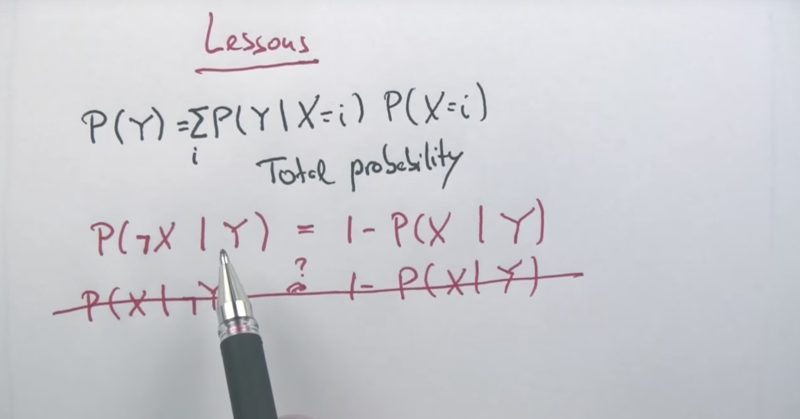 Lessons
P(Y) = Σ P(Y | X=i) P(X=i)
i
Total probability
P(¬X | Y) = 1 - P(X | Y)
P(X | ¬Y) ≟ 1 - P(X | Y)